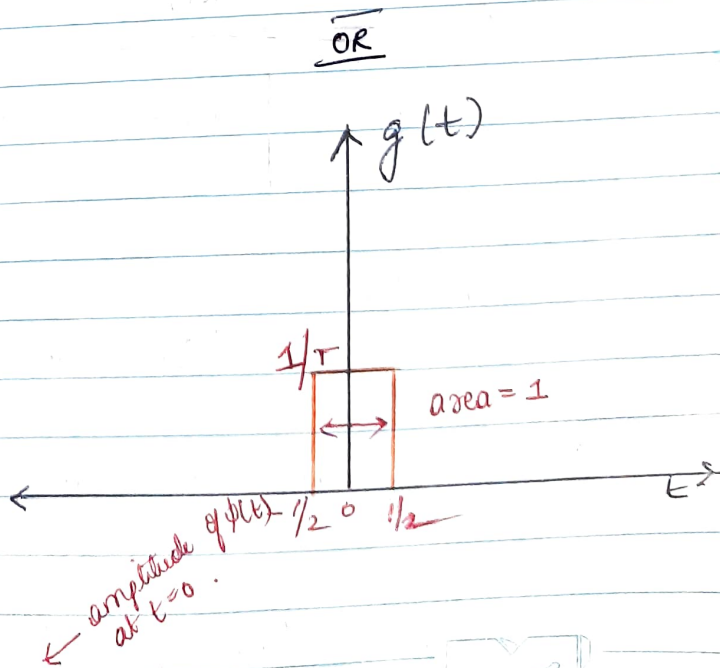 OR
g(t)
1/T
area = 1
t
-1/2 0 1/2
← amplitude of φ(t)
at t=0.